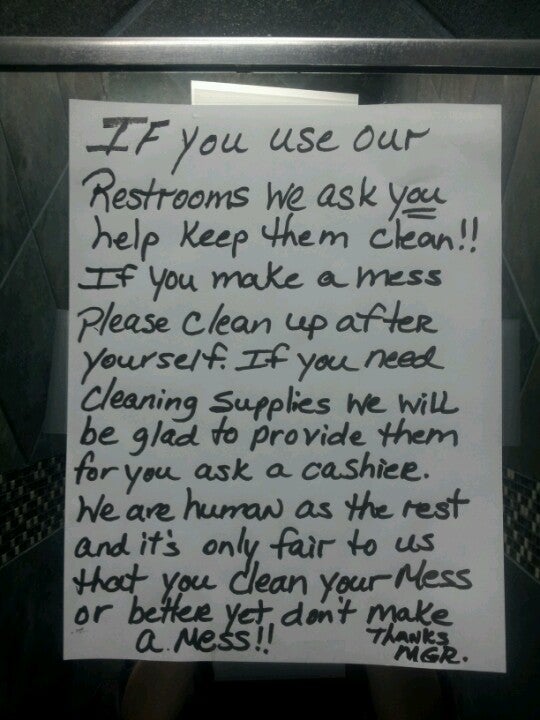 IF you use our
Restrooms we ask you
help keep them clean!!
If you make a mess
Please clean up after
yourself. If you need
Cleaning Supplies we will
be glad to provide them
for you ask a cashier.
We are human as the rest
and it's only fair to us
that you clean your Mess
or better yet don't make
a Mess!! Thanks
MGR.